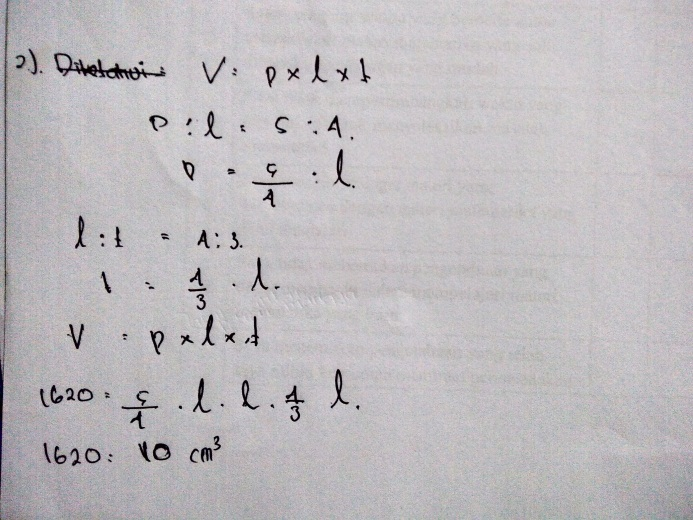 2). Diketahui : V = p x l x t
p : l = 5 : 4.
p = 5/4 : l.
l : t = 4 : 3.
t = 4/3 . l.
V = p x l x t
1620 = 5/4 . l . l . 4/3 l.
1620 : 10 cm³